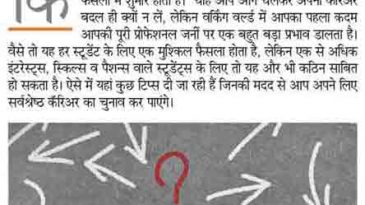 कि फैसलों में शुमार होता है। चाहे आप आगे चलकर अपना करिअर
बदल ही क्यों न लें, लेकिन वर्किंग वर्ल्ड में आपका पहला कदम
आपकी पूरी प्रोफेशनल जर्नी पर एक बहुत बड़ा प्रभाव डालता है।
वैसे तो यह हर स्टूडेंट के लिए एक मुश्किल फैसला होता है, लेकिन एक से अधिक
इंटरेस्ट्स, स्किल्स व पैशन्स वाले स्टूडेंट्स के लिए तो यह और भी कठिन साबित
हो सकता है। ऐसे में यहां कुछ टिप्स दी जा रही हैं जिनकी मदद से आप अपने लिए
सर्वश्रेष्ठ कॅरिअर का चुनाव कर पाएंगे।
?